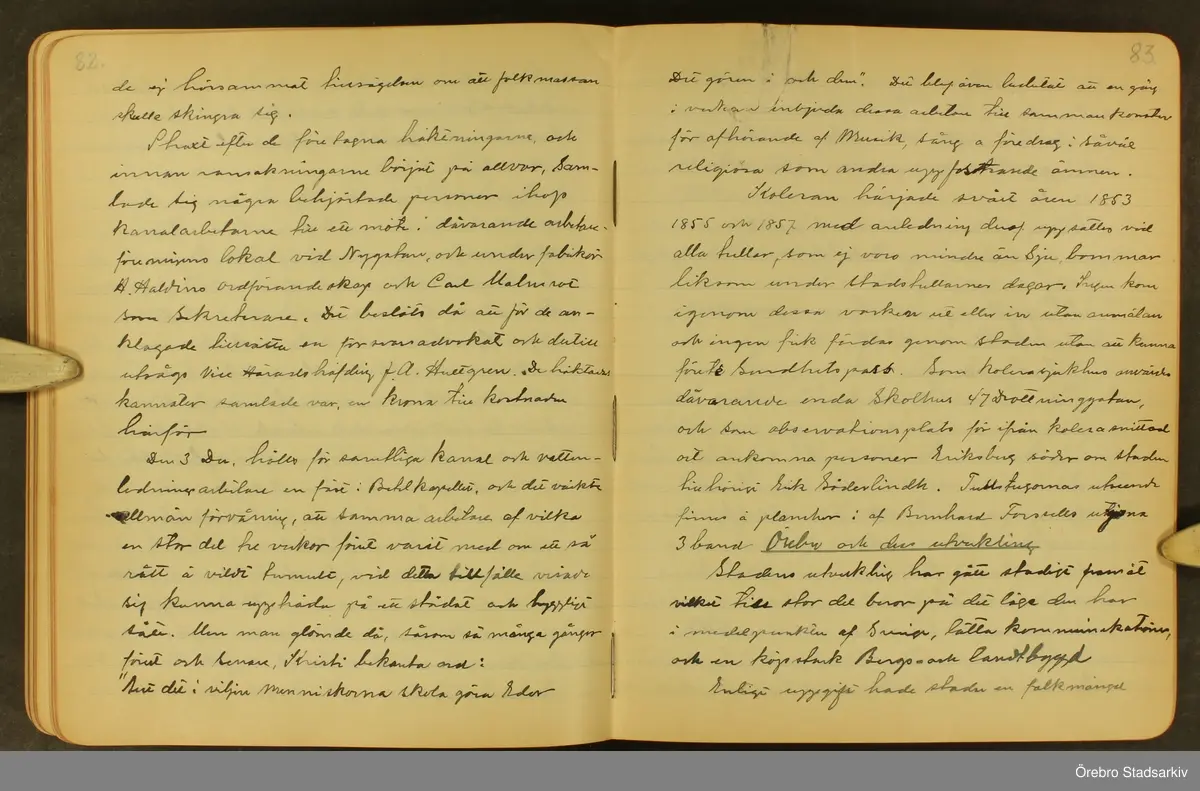 82.
de ej hörsammat tillsägelsen om att folkmassan
skulle skingra sig.
Straxt efter de företagna häktningarne, och
innan ransakningarne börjat på allvar, Sam-
lade sig några behjärtade personer ihop
kanalarbetarne till ett möte i dåvarande arbetare-
föreningens lokal vid Nygatan, och under fabrikör
A. Haldins ordförandeskap och Carl Malmrot
som Sekreterare. Det beslöts då att för de an-
klagade tillsätta en försvarsadvokat och dertill
utsågs Vice Häradshöfding J. A. Hultgren. De häktades
kamrater samlade var, en krona till kostnaden
härför
Den 3 Dec. hölls för samtliga kanal och vatten-
ledningsarbetare en fäst i Betelkapellet, och det väckte
allmän förvåning, att samma arbetare af vilka
en stor del tre veckor förut varit med om ett så
rått å vildt tumult, vid detta tillfälle visade
sig kunna uppträda på ett städat och hyggligt
sätt. Men man glömde då, såsom så många gånger
förut och senare, Kristi bekanta ord:
"Allt det i viljen menniskorna skola göra Eder
83
Det gören i och dem". Det blef även beslutat att en gång
i veckan inbjuda dessa arbetare till sammankomster
för afhörande af Musik, sång o föredrag i såväl
religiösa som andra uppfostrande ämnen.
Koleran härjade svårt åren 1853
1855 och 1857 med anledning deraf uppsattes vid
alla tullar, som ej voro mindre än Sju, bommar
liksom under stadstullarnes dagar. Ingen kom
igenom dessa varken ut eller in utan anmälan
och ingen fick färdas genom staden utan att kunna
förete Sundhetspass. Som kolerasjukhus användes
dåvarande enda Skolhus 47 Drottninggatan,
och som observationsplats för ifrån kolerasmittad
ort ankomna personer Eriksberg söder om staden
tillhörigt Erik Söderlindh. Tullstugornas utseende
finnes å plancher i af Bernhard Forssells utgifna
3 band Örebro och dess utveckling
Stadens utveckling har gått stadigt framåt
vilket till stor del beror på det läge den har
i medelpunkten af Sverige, lätta kommunikationer,
och en köpstark Bergs- och landtbygd
Enligt uppgift hade staden en folkmängd
Örebro Stadsarkiv